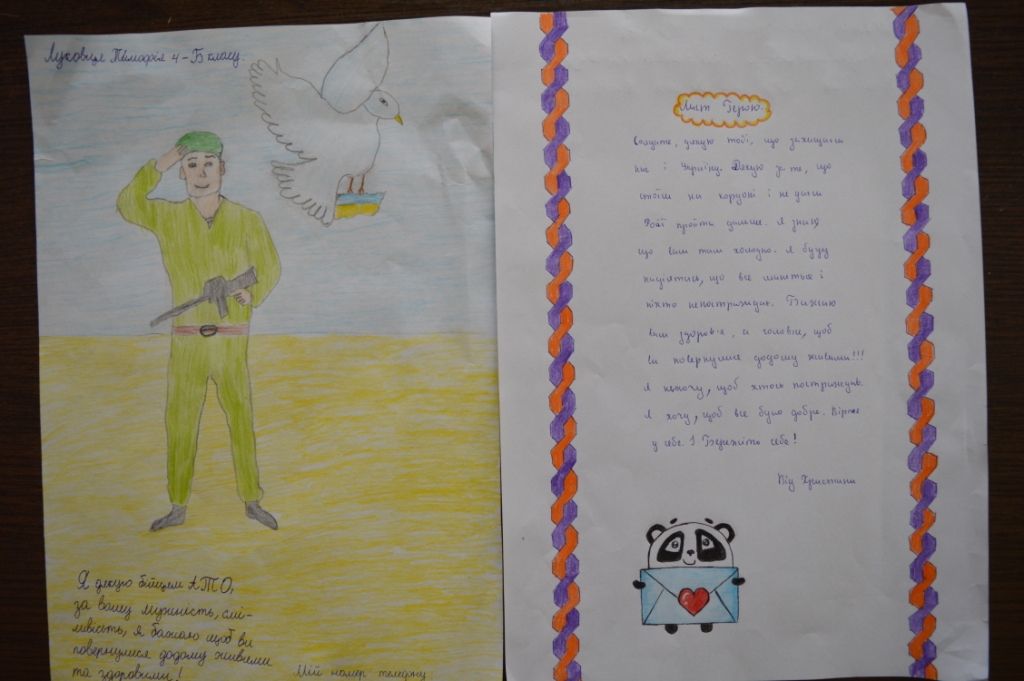 Луковиця Тимофія 4-Б класу.
Я дякую бійцям АТО,
за вашу мужність, смі-
ливість, я бажаю щоб ви
повернулися додому живими
та здоровими!
Мій номер телефну
Лист Герою.
Солдате, дякую тобі, що захищаєш
нас і Україну. Дякую за те, що
стоїш на кордоні і не даєш
Росії пройти дальше. Я знаю
що вам там холодно. Я буду
надіятись, що все
ніхто непостраждає. Бажаю
вам здоров'я, а головне, щоб
ви повернулися додому живими!!!
Я нехочу, щоб хтось постраждав.
Я хочу, щоб все було добре. Вірте
у себе. І Бережіть себе!
Від Христини